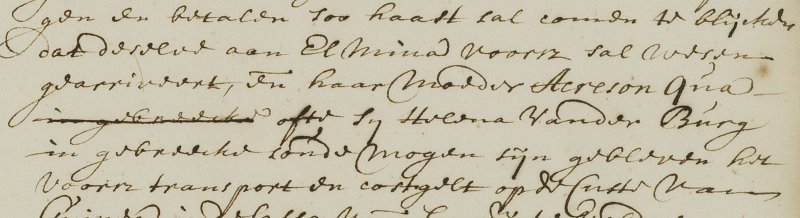 gen en betalen soo haast sal comen te blijcken
dat deselve aan El Mina voorsz sal wesen
gearriveert, en haar Moeder Acreson Qua-
in gebreecke ofte sy Helena Vander Burg
in gebreecke sonde Mogen sijn gebleven het
voorsz transport en costgelt op de Custe van